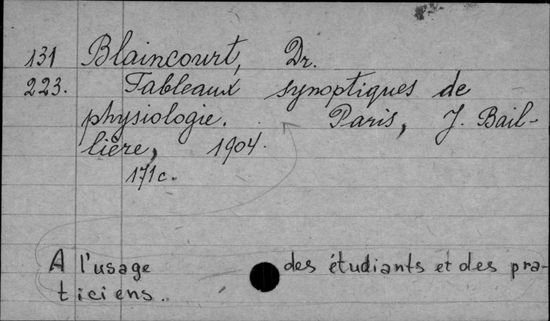 131 Blaincourt, Dr.
223. Tableaux synoptiques de
physiologie. Paris, J. Bail-
lière, 1904.
171c.
A l'usage des étudiants et des pra-
ticiens.